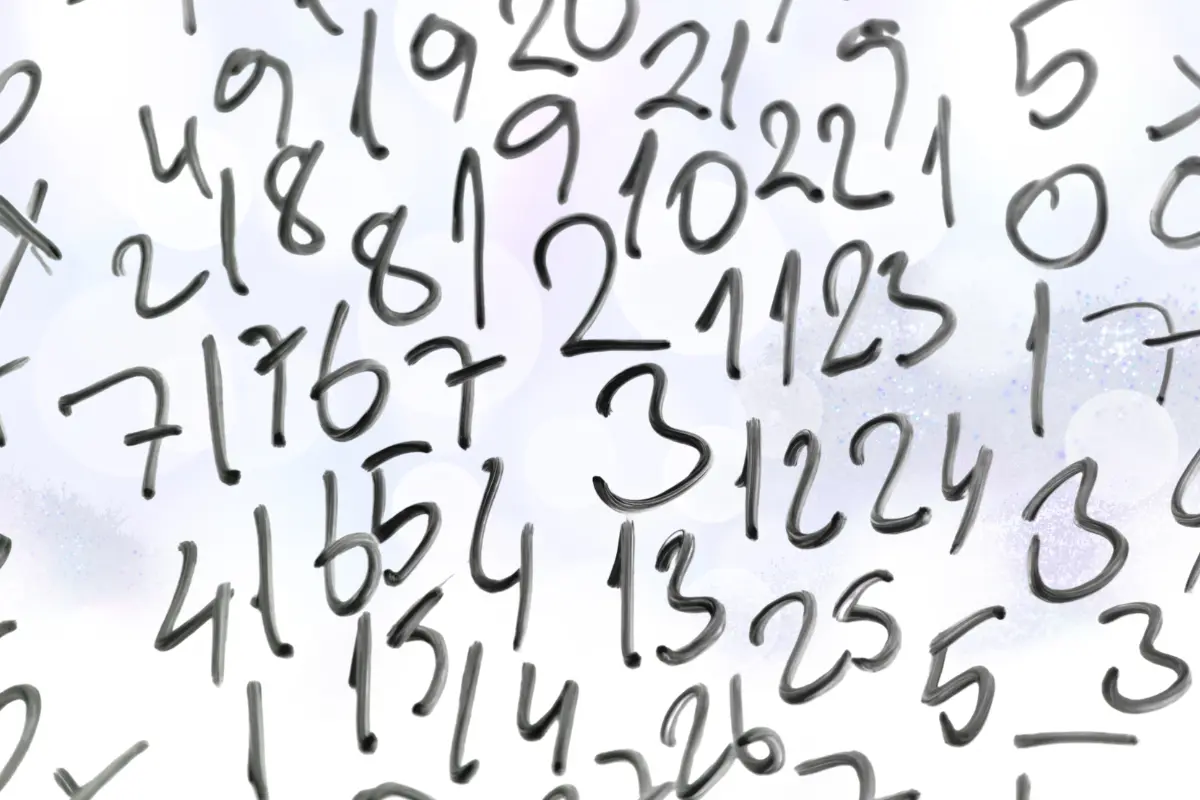 20
9 19 21 9 5
4 9 22 1
18 10 0
2 8 1 2
11 1 23
7 17 6 7 1 7
3
12 24
16 5 4 3
4 1 13
15 25 5 3
1 14 26